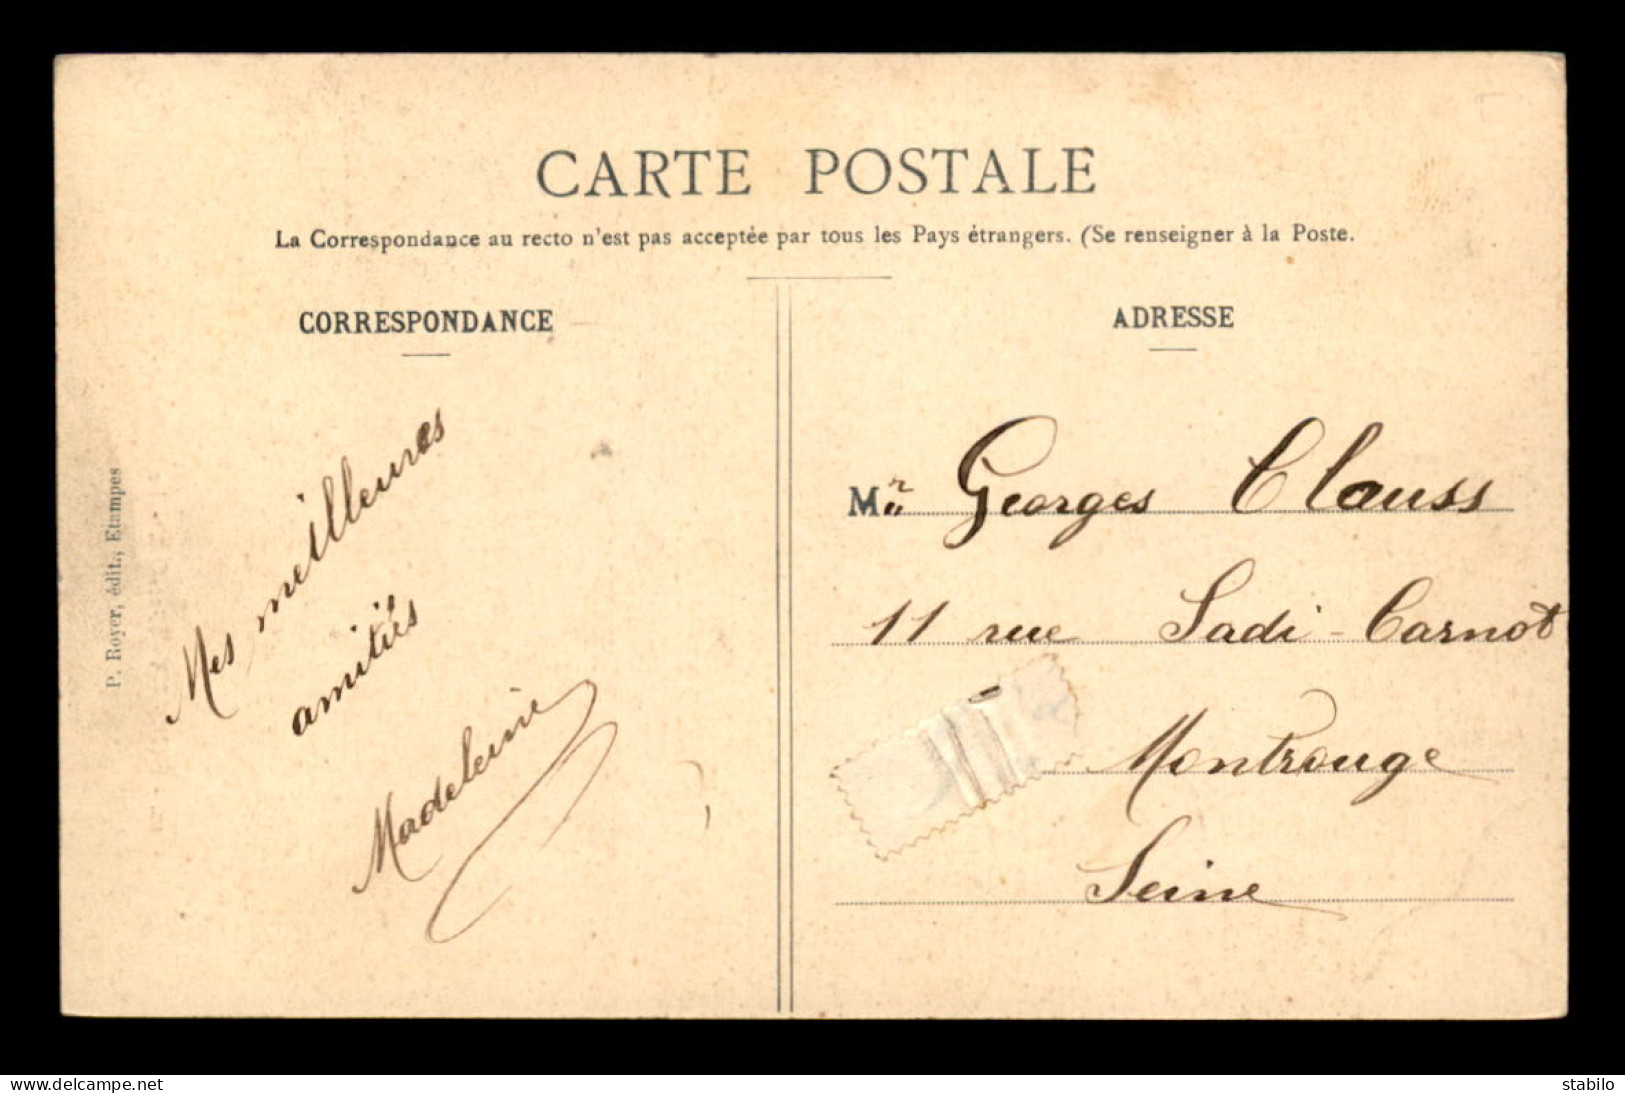 CARTE POSTALE
La Correspondance au recto n'est pas acceptée par tous les Pays étrangers. (Se renseigner à la Poste.
CORRESPONDANCE
ADRESSE
P. Royer, édit., Etampes
Mes meilleures
amitiés
Madeleine
Mr Georges Clauss
11 rue Sadi-Carnot
Montrouge
Seine
delcampe.net
stabilo